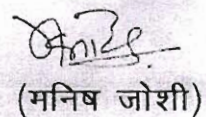 (मनिष जोशी)